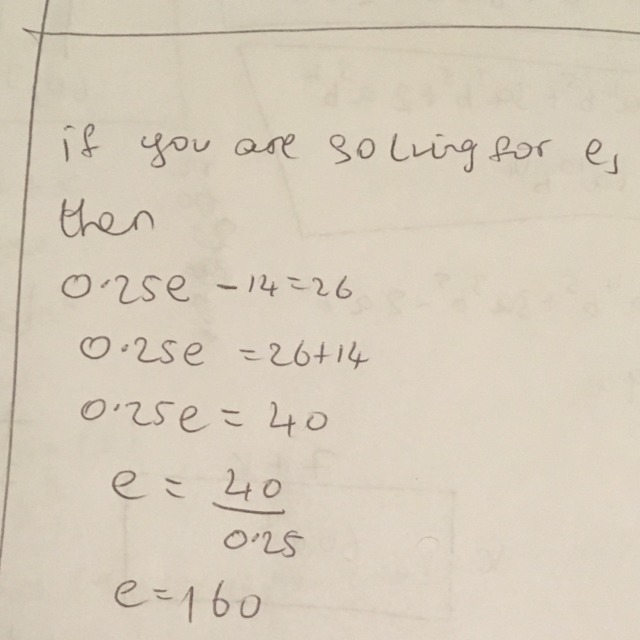 if you are solving for e,
then
0.25e - 14 = 26
0.25e = 26+14
0.25e = 40
e = 40
0.25
e = 160